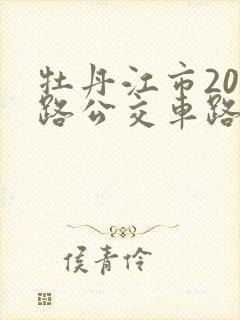 牡丹江市20
路公交車路
侯青伶